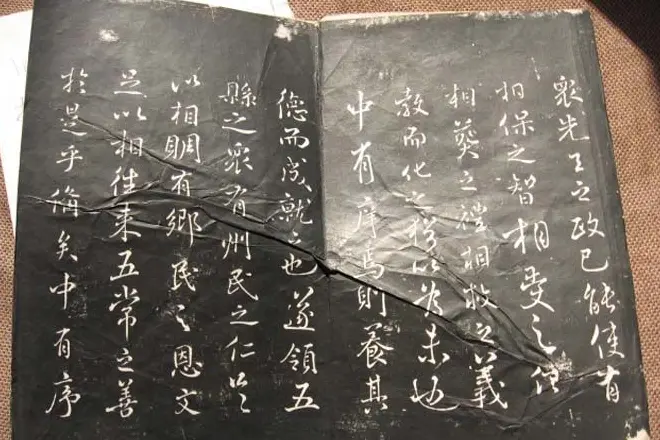 眾先王之政已能使有
相保之智相受之信
相葬之禮相救之義
教而化之猶以為未也
中有序焉則養其
德而成就之也遂領五
縣之眾有州民之仁足
以相賙有鄉民之恩文
足以相往来五常之善
於是乎備矣中有序